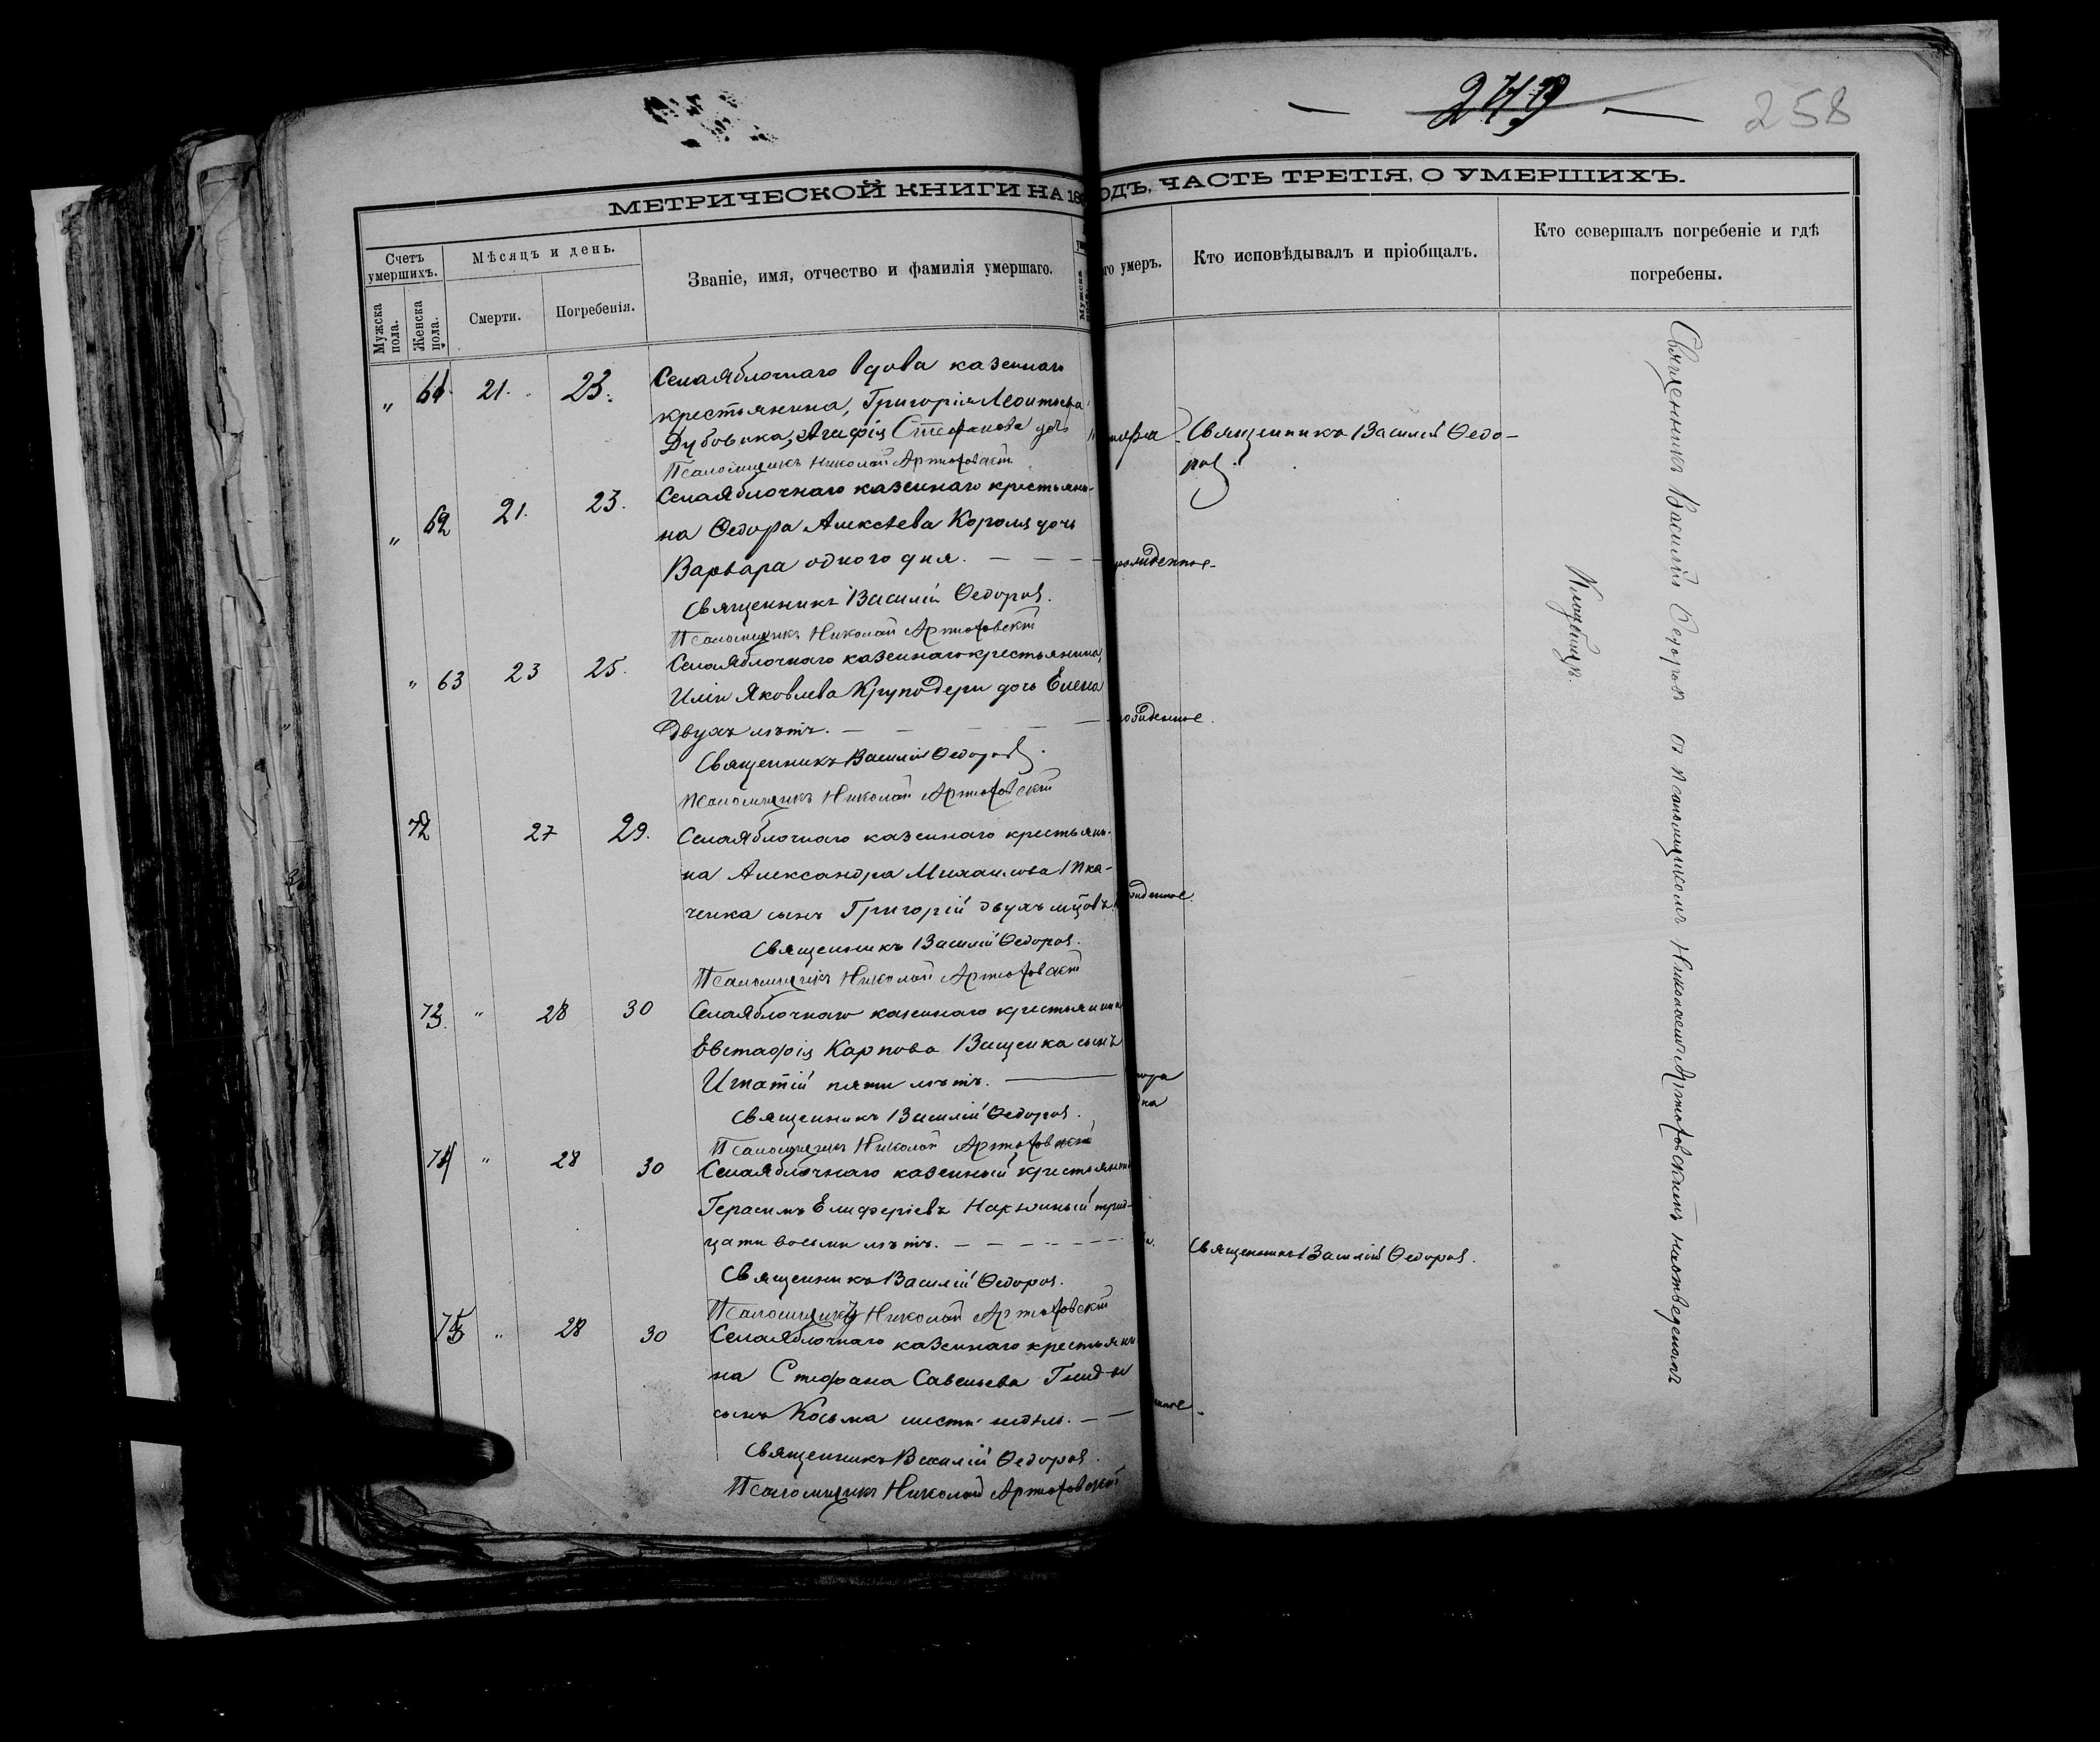 249
258
МЕТРИЧЕСКОЙ КНИГИ НА 18
ОДЪ, ЧАСТЬ ТРЕТІЯ, О УМЕРШИХЪ.
Счетъ умершихъ.
Мужска пола.
Женска пола.
Мѣсяцъ и день.
Смерти.
Погребенія.
Званіе, имя, отчество и фамилія умершаго.
Мужска
го умеръ.
Кто исповѣдывалъ и пріобщалъ.
Кто совершалъ погребеніе и гдѣ
погребены.
" 61. 21. 23. Села Яблочнаго вдова казеннаго
крестьянина, Григорія Леонтьева
Дубовика, Агафія Стефанова дочь
Псаломщикъ Николай Артюховскій
Священникъ Василій Ѳедо-
ровъ.
" 62 21. 23. Села Яблочнаго казеннаго крестьяни-
на Ѳедора Алексѣева Короля дочь
Варвара одного дня.
Священникъ Василій Ѳедоровъ.
Псаломщикъ Николай Артюховскій
" 63 23 25. Села Яблочнаго казеннаго крестьянина,
Иліи Яковлева Круподери дочь Елена
двухъ лѣтъ.
Священникъ Василій Ѳедоровъ.
Псаломщикъ Николай Артюховскій
72 27 29. Села Яблочнаго казеннаго крестьяни-
на Александра Михаилова Тка-
ченка сынъ Григорій двухъ м-цовъ.
Священникъ Василій Ѳедоровъ.
Псаломщикъ Николай Артюховскій
73. " 28 30 Села Яблочнаго казеннаго крестьянина
Евстафія Карпова Ващенка сынъ
Игнатій пяти лѣтъ.
Священникъ Василій Ѳедоровъ.
Псаломщикъ Николай Артюховскій
74 " 28 30 Села Яблочнаго казенный крестьянинъ
Герасимъ Елиферіевъ трид-
цати восьми лѣтъ.
Священникъ Василій Ѳедоровъ.
Священникъ Василій Ѳедоровъ.
Псаломщикъ Николай Артюховскій
75 " 28 30 Села Яблочнаго казеннаго крестьяни-
на Стефана Савельева
сынъ Косьма шести недѣль.
Священникъ Василій Ѳедоровъ.
Псаломщикъ Николай Артюховскій
Священникъ Василій Ѳедоровъ съ псаломщикомъ Николаемъ Артюховскимъ на отведенномъ
Кладбищѣ.